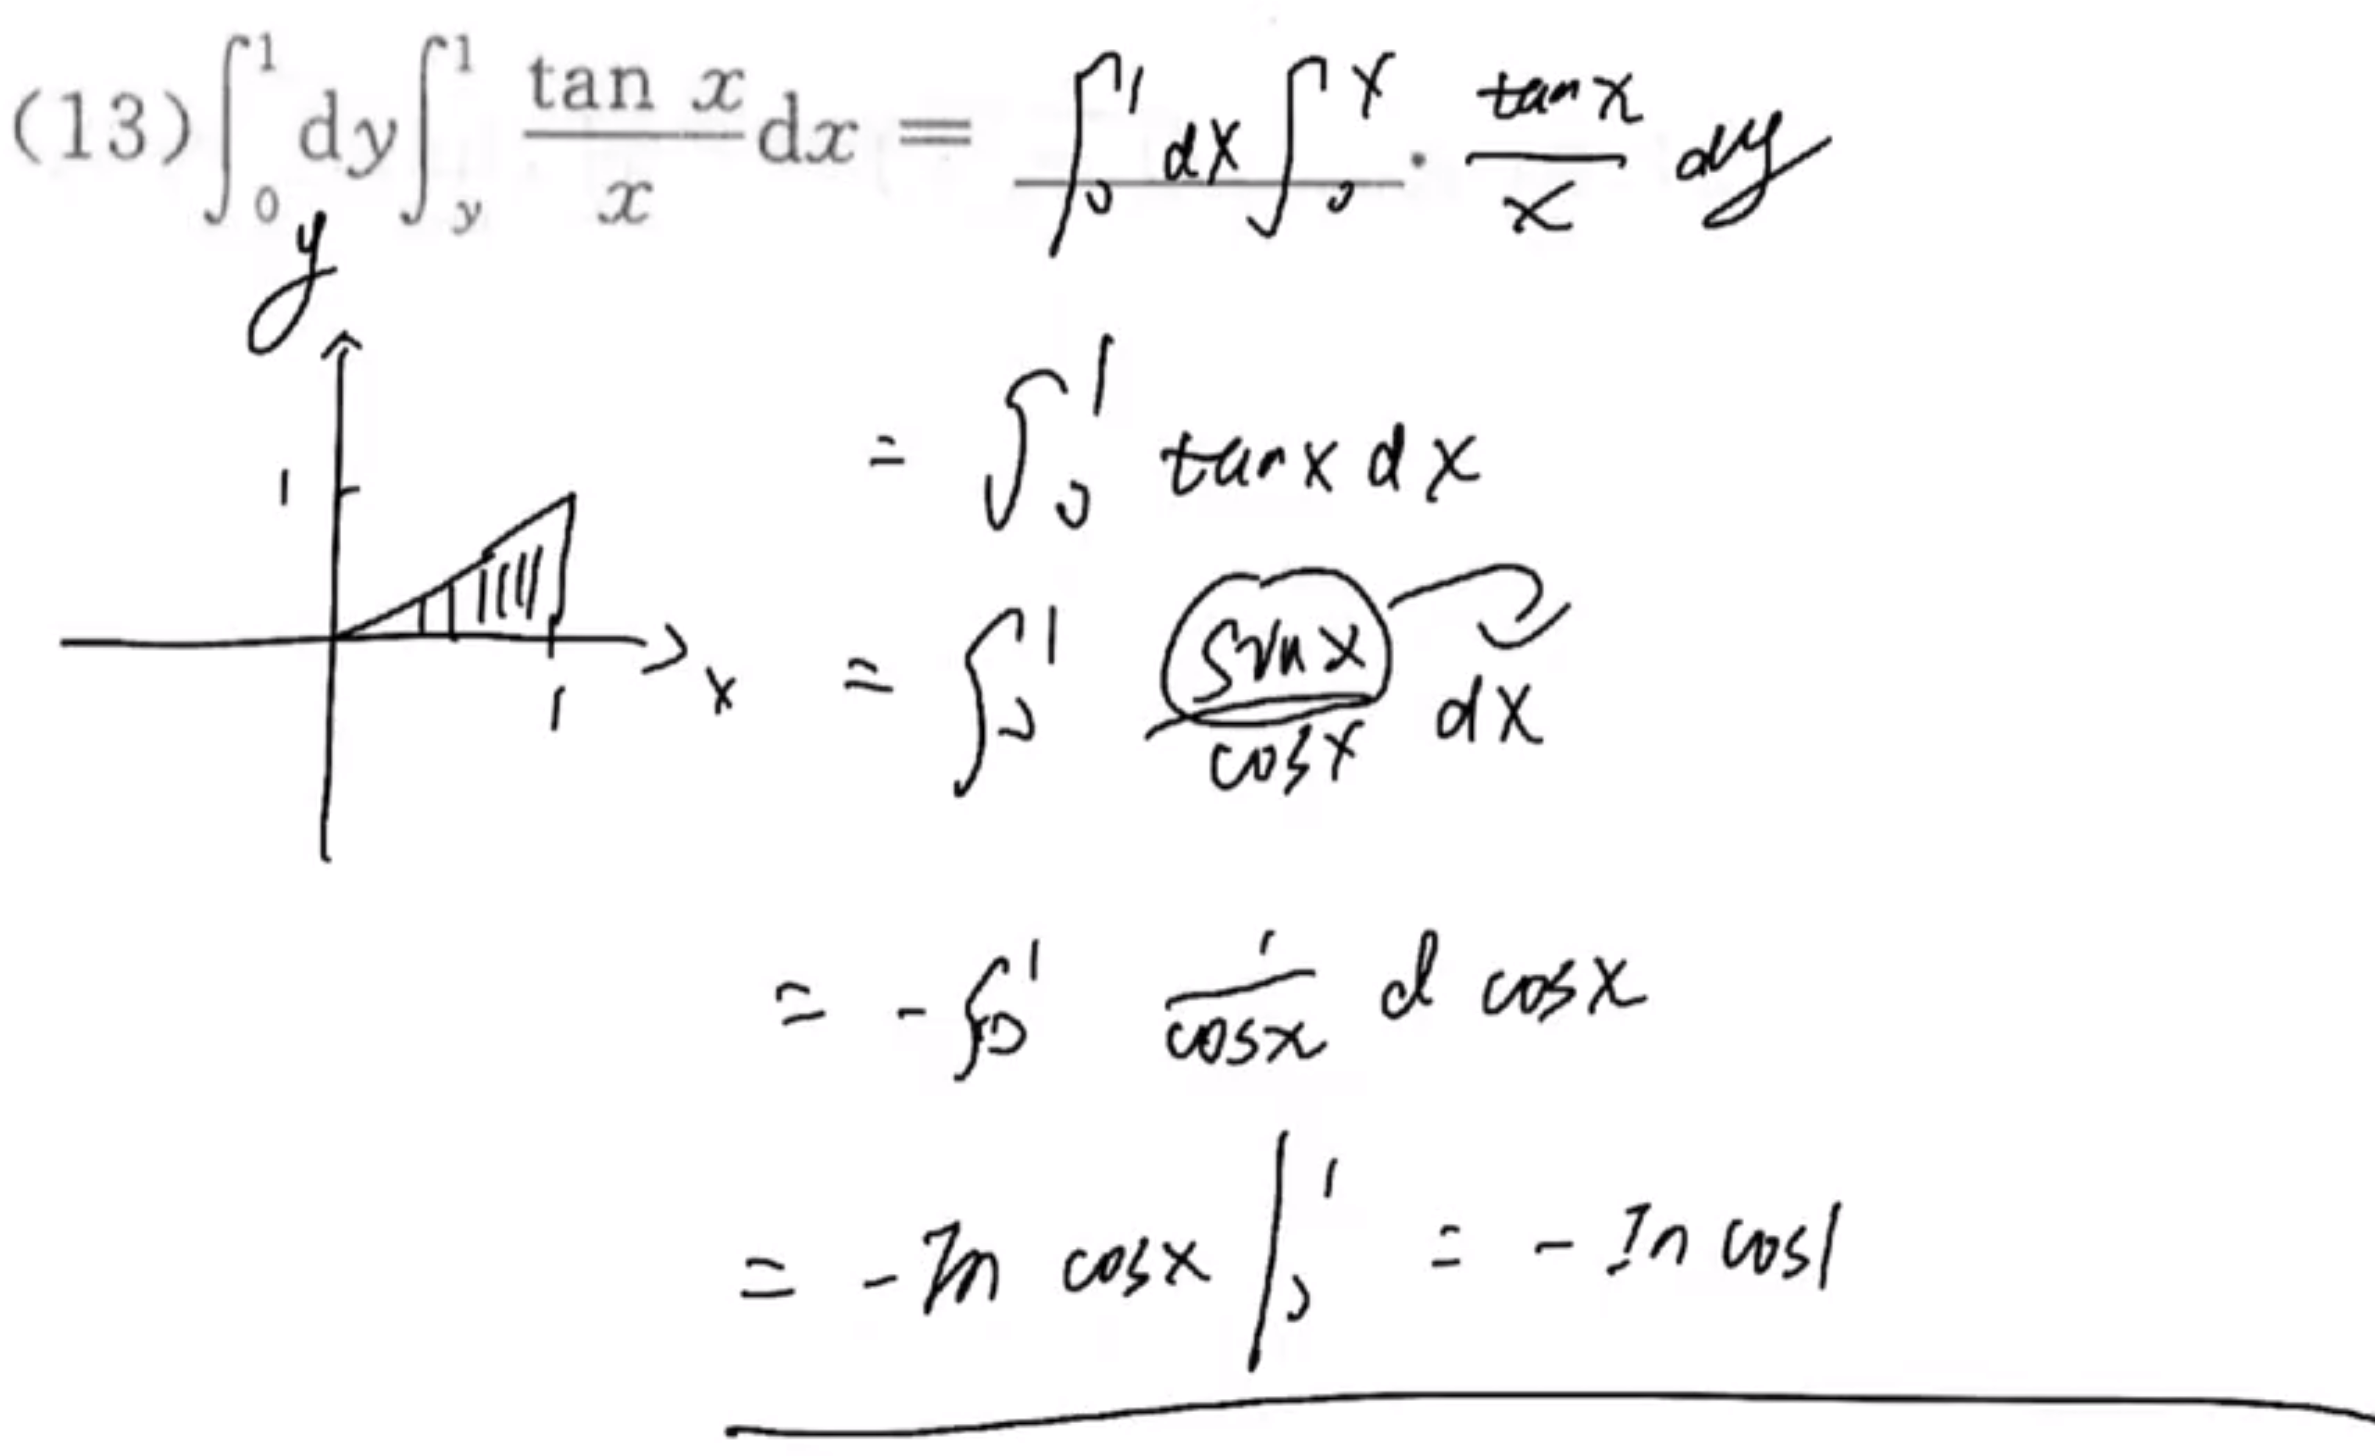 (13)∫₀¹ dy ∫_y¹ (tan x)/x dx = ∫₀¹ dx ∫₀ˣ · (tan x)/x dy
y
1
x
1
= ∫₀¹ tan x dx
= ∫₀¹ (sin x)/(cos x) dx
= - ∫₀¹ 1/(cos x) d cos x
= - ln cos x |₀¹ = - ln cos 1